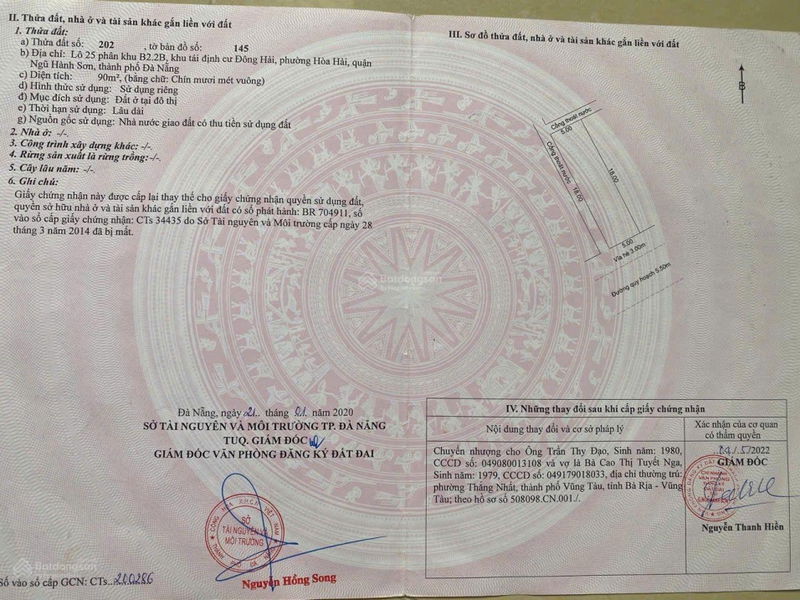 II. Thửa đất, nhà ở và tài sản khác gắn liền với đất
1. Thửa đất:
a) Thửa đất số: 202 , tờ bản đồ số: 145
b) Địa chỉ: Lô 25 phân khu B2.2B, khu tái định cư Đông Hải, phường Hòa Hải, quận
Ngũ Hành Sơn, thành phố Đà Nẵng
c) Diện tích: 90m², (bằng chữ: Chín mươi mét vuông)
d) Hình thức sử dụng: Sử dụng riêng
đ) Mục đích sử dụng: Đất ở tại đô thị
e) Thời hạn sử dụng: Lâu dài
g) Nguồn gốc sử dụng: Nhà nước giao đất có thu tiền sử dụng đất
2. Nhà ở: -/-
3. Công trình xây dựng khác: -/-
4. Rừng sản xuất là rừng trồng:-/-
5. Cây lâu năm: -/-
6. Ghi chú:
Giấy chứng nhận này được cấp lại thay thế cho giấy chứng nhận quyền sử dụng đất,
quyền sở hữu nhà ở và tài sản khác gắn liền với đất có số phát hành: BR 704911, số
vào sổ cấp giấy chứng nhận: CTs 34435 do Sở Tài nguyên và Môi trường cấp ngày 28
tháng 3 năm 2014 đã bị mất.
III. Sơ đồ thửa đất, nhà ở và tài sản khác gắn liền với đất
B
Cống thoát nước
5.00
Cống thoát nước
18.00
18.00
5.00
Vỉa hè 3.00m
Đường quy hoạch 5.50m
Batdongsan
Đà Nẵng, ngày 21.. tháng 01 năm 2020
SỞ TÀI NGUYÊN VÀ MÔI TRƯỜNG TP. ĐÀ NẴNG
TUQ. GIÁM ĐỐC
GIÁM ĐỐC VĂN PHÒNG ĐĂNG KÝ ĐẤT ĐAI
SỞ
TÀI NGUYÊN VÀ
MÔI TRƯỜNG
Nguyễn Hồng Song
Batdongsan
Số vào sổ cấp GCN: CTs..200286
IV. Những thay đổi sau khi cấp giấy chứng nhận
Nội dung thay đổi và cơ sở pháp lý
Xác nhận của cơ quan
có thẩm quyền
Chuyển nhượng cho Ông Trần Thy Đạo, Sinh năm: 1980,
CCCD số: 049080013108 và vợ là Bà Cao Thị Tuyết Nga,
Sinh năm: 1979, CCCD số: 049179018033, địa chỉ thường trú:
phường Thắng Nhất, thành phố Vũng Tàu, tỉnh Bà Rịa - Vũng
Tàu; theo hồ sơ số 508098.CN.001./.
/5/2022
GIÁM ĐỐC
Nguyễn Thanh Hiền